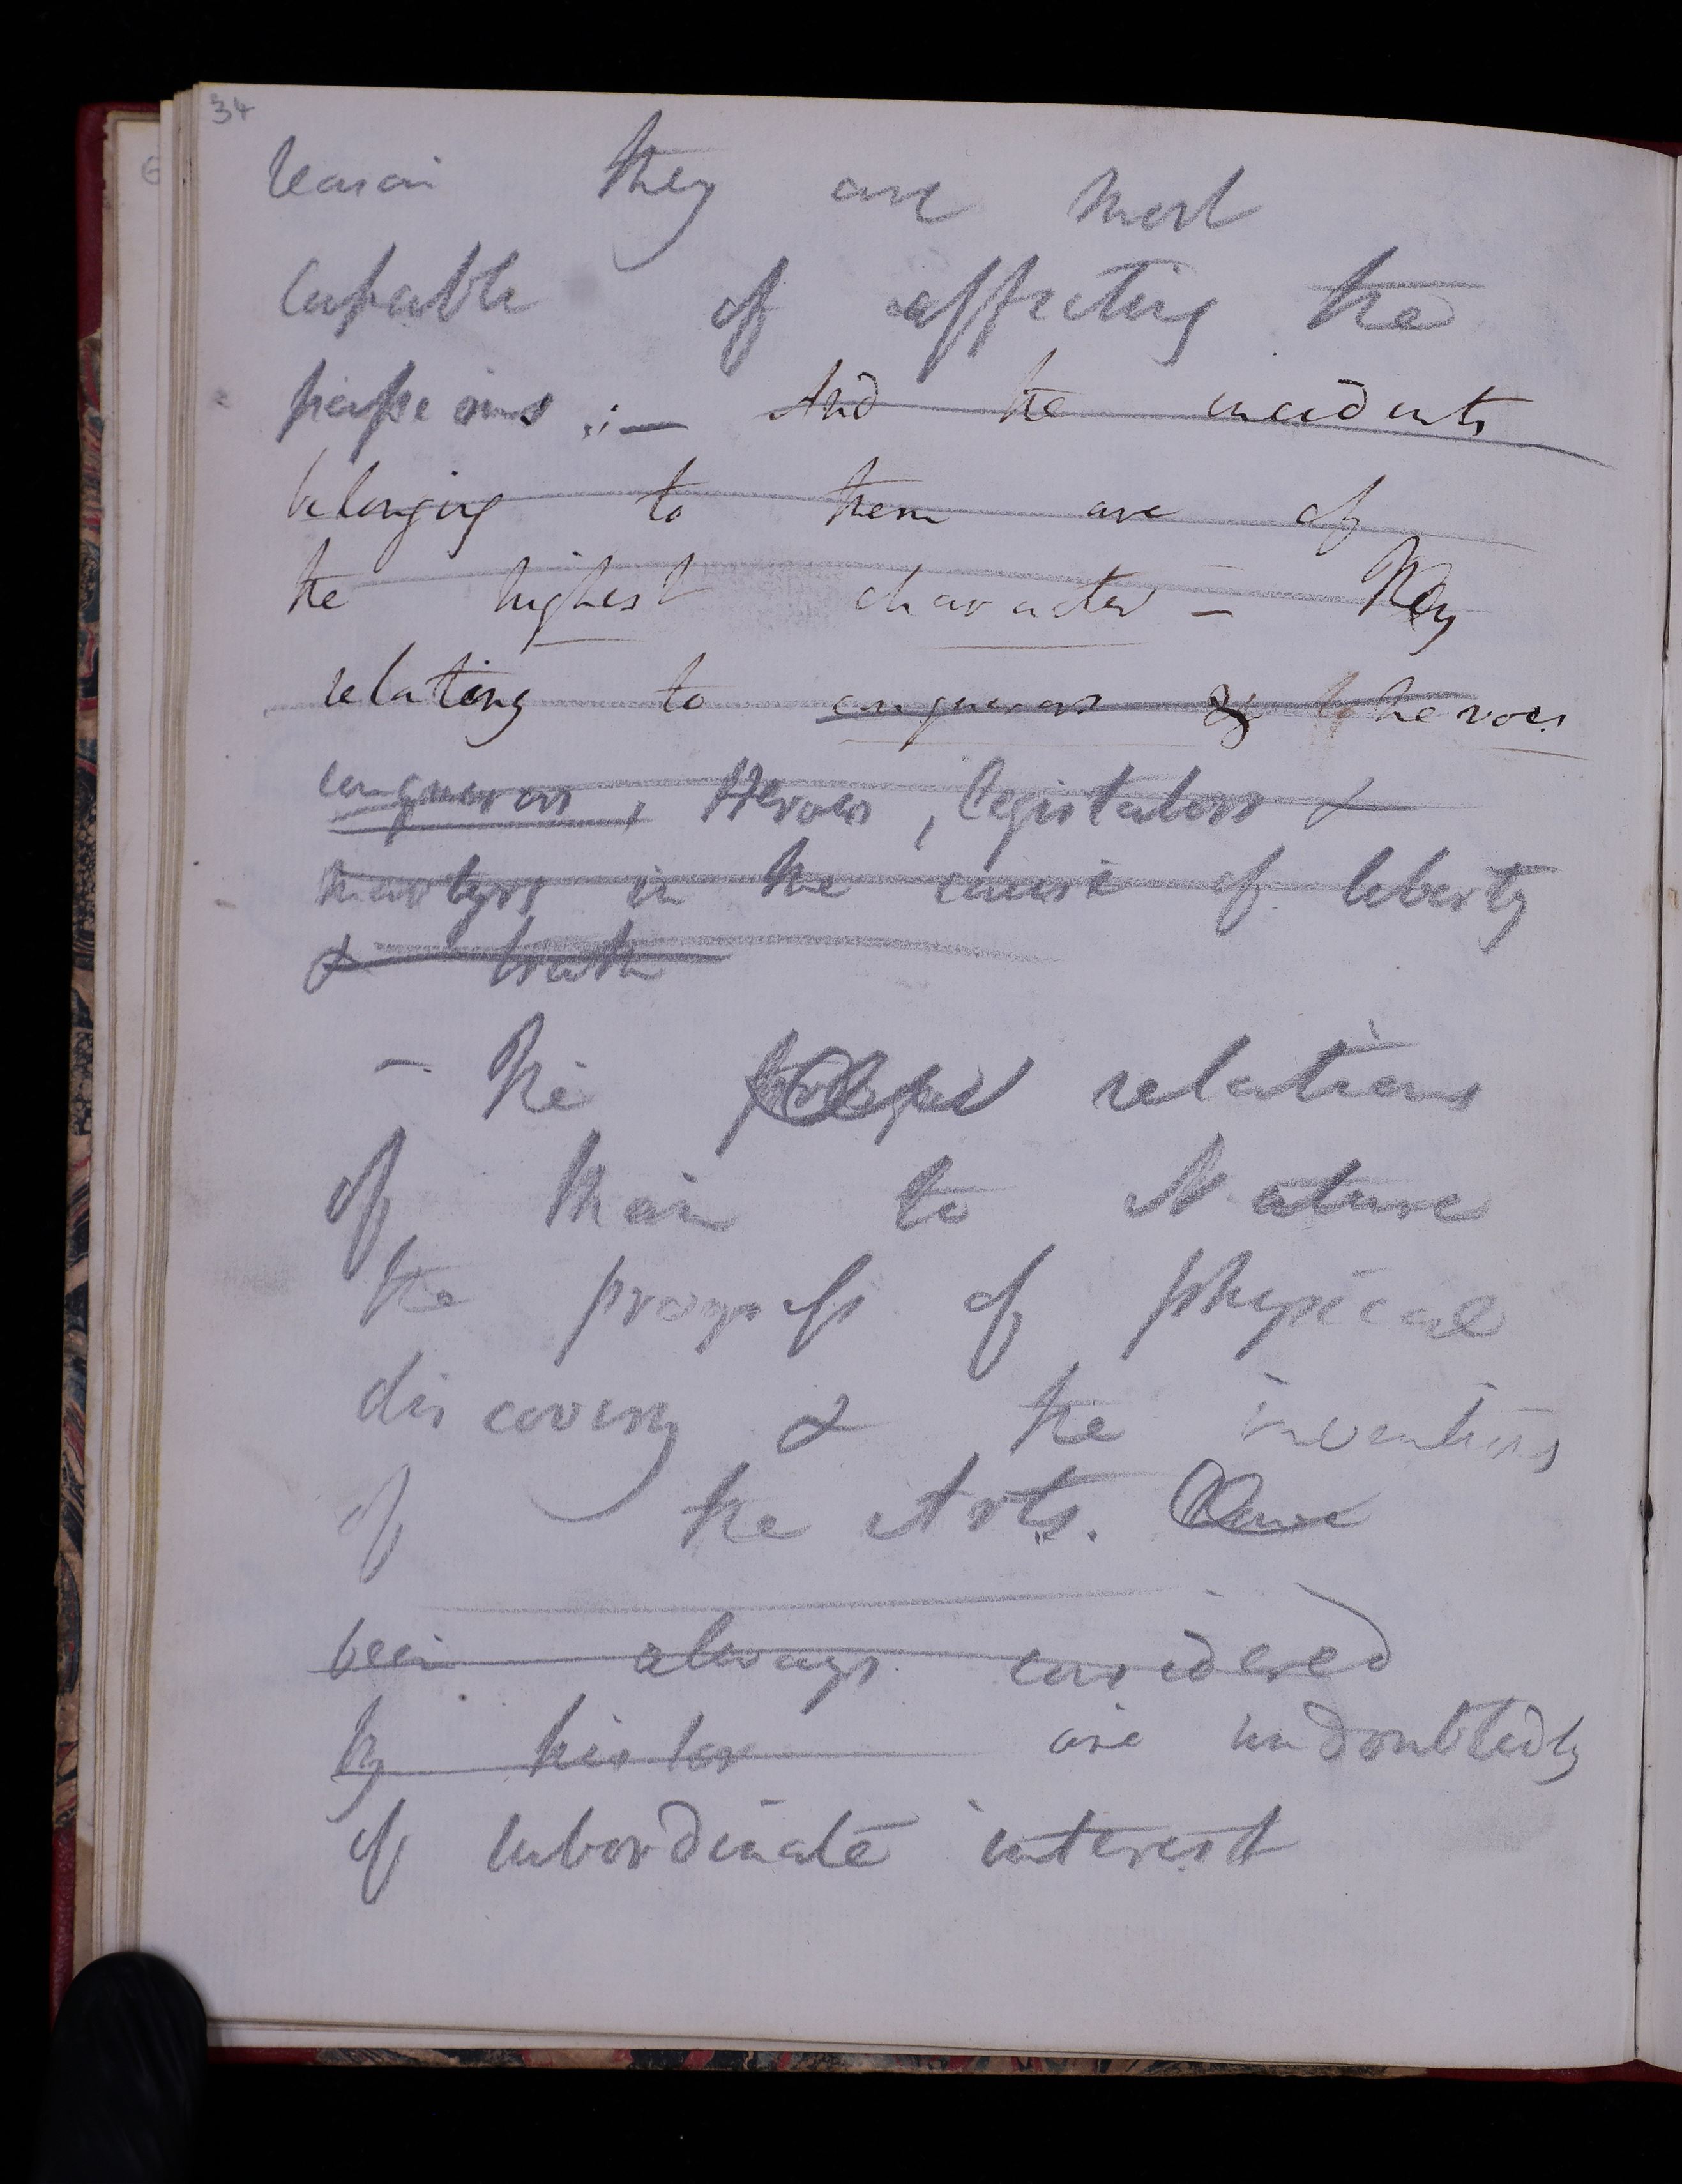 34
reason they are most
capable of affecting the
passions.:— And the incidents
belonging to them are of
the highest character – They
relating to conquerors & to heroes
conquerors, Heroes, legislators &
martyrs in the cause of liberty
& truth
– The relations
of Man to Nature
the progress of physical
discovery & the inventions
of the Arts. Have
been always considered
by histor are undoubtedly
of subordinate interest